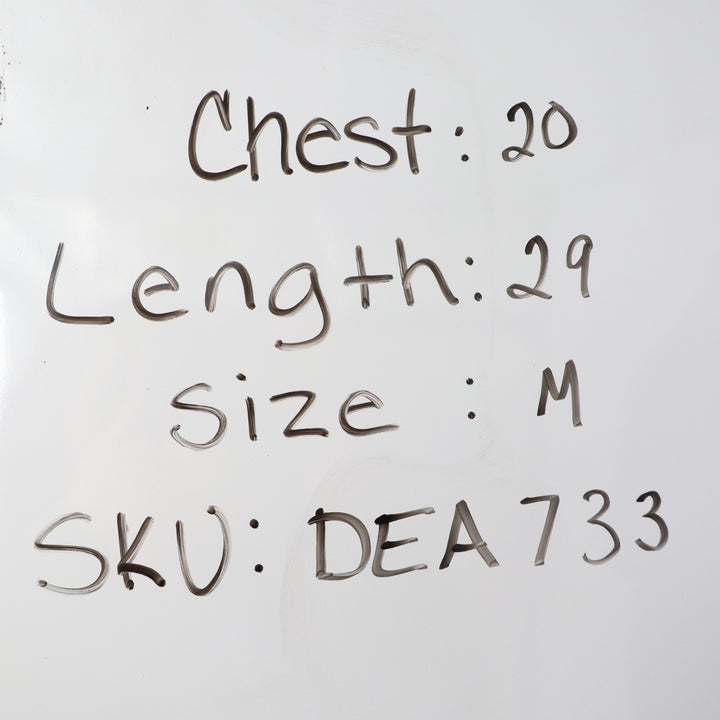 Chest: 20
Length: 29
Size : M
SKU: DEA 733